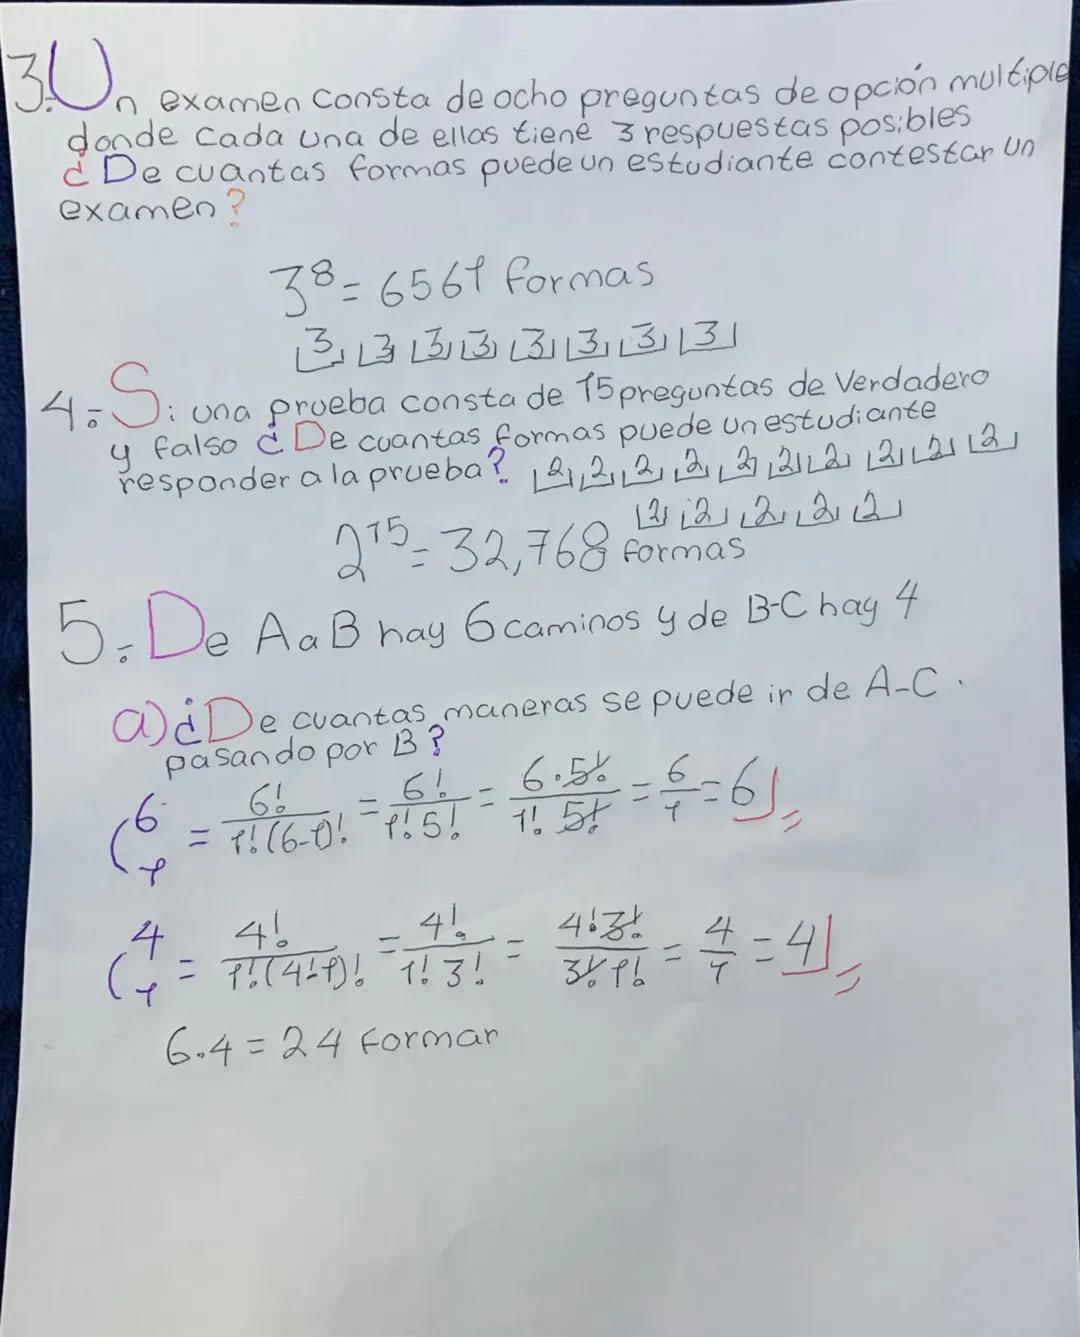 3.- Un examen consta de ocho preguntas de opción multiple
donde cada una de ellas tiene 3 respuestas posibles
¿De cuantas formas puede un estudiante contestar un
examen?
3^8 = 6561 formas
3 3 3 3 3 3 3 3
4.- Si una prueba consta de 15 preguntas de Verdadero
y falso ¿De cuantas formas puede un estudiante
responder a la prueba? 2 2 2 2 2 2 2 2 2 2
2 2 2 2 2
2^15 = 32,768 formas
5.- De A a B hay 6 caminos y de B-C hay 4
a) ¿De cuantas maneras se puede ir de A-C.
pasando por B?
(6 1 = 6!/1!(6-1)! = 6!/1!5! = 6·5!/1!5! = 6/1 = 6
(4 1 = 4!/1!(4!-1)! = 4!/1!3! = 4!3!/3!1! = 4/1 = 4
6.4 = 24 Formar